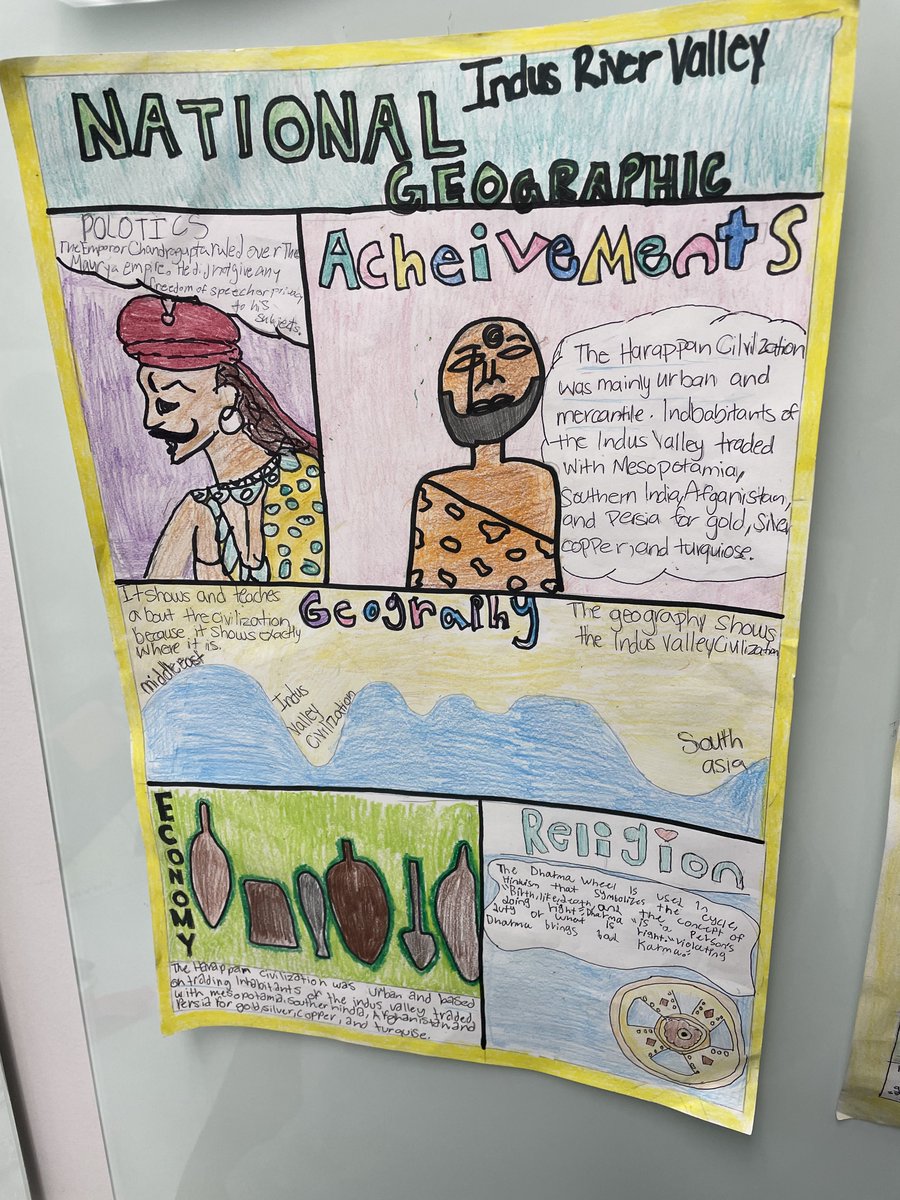 Indus River Valley
NATIONAL
GEOGRAPHIC
POLOTICS
The Emperor Chandragupta ruled over The
Maurya empire. He did not give any
freedom of speech or privacy
to his
subjects.
AcheiveMentS
The Harappan Cilvilization
was mainly urban and
mercantile. Indbabitants of
the Indus Valley traded
with Mesopotamia,
Southern India, Afganistan,
and Persia for gold, silver
copper, and turquiose.
Geography
It shows and teaches
about the civilization
because it shows exactly
where it is.
The geography shows
the Indus Valley Civilization
middle east
Indus
Valley
Civilization
South
asia
ECONOMY
The Harappam civilization was urban and based
on trading. Inhabitants of the indus valley traded
with mesopotama, southern india, Afghanistan and
Persia for gold, silver, copper, and turquise.
Religion
The Dharma wheel is used in
Hinduism that symbolizes the cycle,
"Birth, life, death, and the concept of
doing right." Dharma "is a person's
duty or what is right." violating
Dharma brings bad Karma.